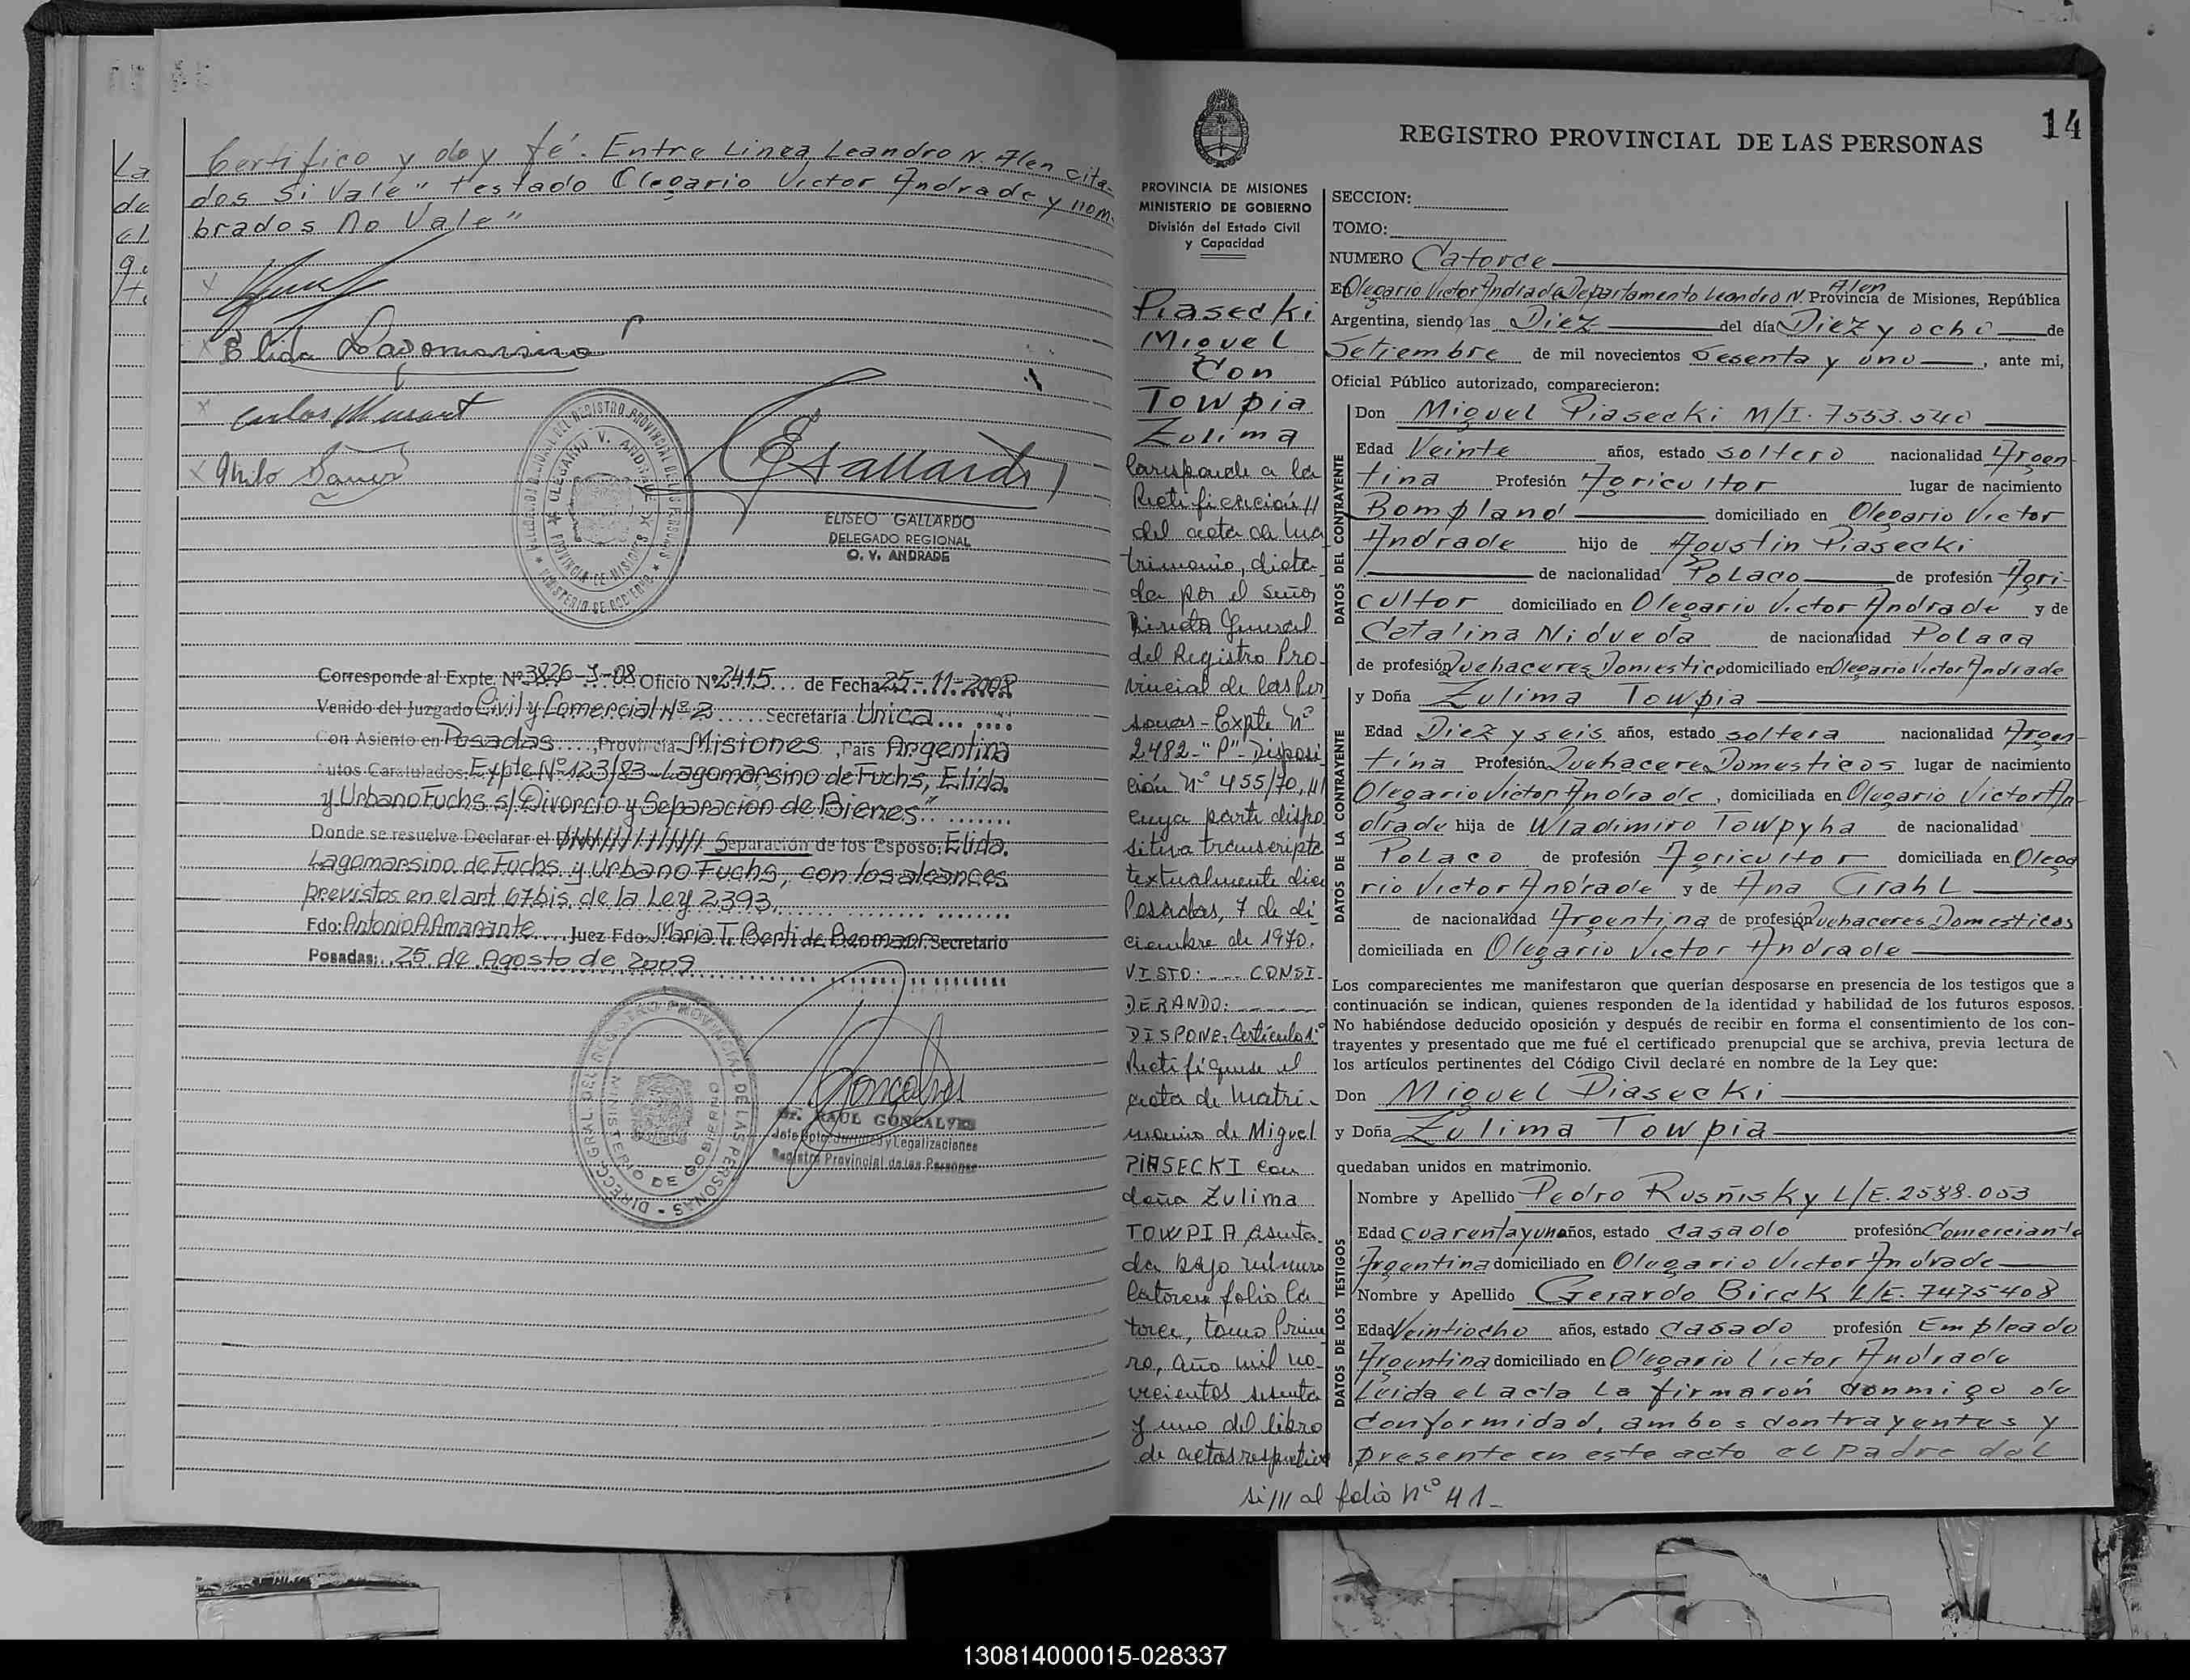 Certifico y doy fé. Entre Linea Leandro N. Alen cita-
dos Si Vale" testado Olegario Victor Andrade y nom-
brados no Vale"
Elida Lagomarsino
ELISEO GALLARDO
DELEGADO REGIONAL
O. V. ANDRADE
Corresponde al Expte. Nº 3826-J-08 Oficio Nº 2415 de Fecha 25-11-2008
Venido del Juzgado Civil y Comercial Nº 2 Secretaría Unica
Con Asiento en Posadas, Provincia Misiones, País Argentina
Autos Caratulados: Expte Nº 123/83 - Lagomarsino de Fuchs, Elida
y Urbano Fuchs s/ Divorcio y Separacion de Bienes"
Donde se resuelve Declarar el Separación de los Esposo: Elida
Lagomarsino de Fuchs y Urbano Fuchs, con los alcances
previstos en el art 67 bis de la Ley 2393
Fdo: Antonio A. Amarante Juez Fdo: Maria T. Berti de Baomann Secretario
Posadas: 25 de Agosto de 2009
Dr. RAUL GONCALVES
Jefe Dpto. Jurídico y Legalizaciones
Registro Provincial de las Personas
14
REGISTRO PROVINCIAL DE LAS PERSONAS
PROVINCIA DE MISIONES
MINISTERIO DE GOBIERNO
División del Estado Civil
y Capacidad
Piasecki
Miguel
Con
Towpia
Zulima
Corresponde a la
Rectificación //
del acta de ma
trimonio, dicta-
da por el Señor
Director General
del Registro Pro-
vincial de las Per
sonas - Expte Nº
2482-"P"- Disposi
ción Nº 455/70,
cuya parte dispo
sitiva transcripta
textualmente dice
Posadas, 7 de di
ciembre de 1970.
VISTO: ---- CONSI-
DERANDO: ------
DISPONE: Artículo 1º
Rectifíquese el
acta de Matri-
monio de Miguel
PIASECKI con
doña Zulima
TOWPIA, asenta-
da bajo número
Catorce folio Ca-
torce, tomo Prime
ro, año mil no-
vecientos sesenta
y uno del libro
de actas respectivo
si/// al folio nº 41-
SECCION:
TOMO:
NUMERO Catorce
En Olegario Victor Andrade Departamento Leandro N. Alen Provincia de Misiones, República
Argentina, siendo las Diez del día Diez y ocho de
Setiembre de mil novecientos Sesenta y uno, ante mi,
Oficial Público autorizado, comparecieron:
DATOS DEL CONTRAYENTE
Don Miguel Piasecki M/I. 7553.540
Edad Veinte años, estado soltero nacionalidad Argen
tina Profesión Agricultor lugar de nacimiento
Bompland domiciliado en Olegario Victor
Andrade hijo de Agustin Piasecki
de nacionalidad Polaco de profesión Agri-
cultor domiciliado en Olegario Victor Andrade y de
Catalina Nidueda de nacionalidad Polaca
de profesión Quehaceres Domestico domiciliado en Olegario Victor Andrade
DATOS DE LA CONTRAYENTE
y Doña Zulima Towpia
Edad Diez y seis años, estado soltera nacionalidad Argen
tina Profesión Quehacere Domesticos lugar de nacimiento
Olegario Victor Andrade, domiciliada en Olegario Victor An
drade hija de Wladimiro Towpyha de nacionalidad
Polaco de profesión Agricultor domiciliada en Olega
rio Victor Andrade y de Ana Grahl
de nacionalidad Argentina de profesión Quehaceres Domesticos
domiciliada en Olegario Victor Andrade
Los comparecientes me manifestaron que querían desposarse en presencia de los testigos que a
continuación se indican, quienes responden de la identidad y habilidad de los futuros esposos.
No habiéndose deducido oposición y después de recibir en forma el consentimiento de los con-
trayentes y presentado que me fué el certificado prenupcial que se archiva, previa lectura de
los artículos pertinentes del Código Civil declaré en nombre de la Ley que:
Don Miguel Piasecki
y Doña Zulima Towpia
quedaban unidos en matrimonio.
DATOS DE LOS TESTIGOS
Nombre y Apellido Pedro Rusñisky L/E. 2588.053
Edad cuarentayun años, estado casado profesión Comerciante
Argentina domiciliado en Olegario Victor Andrade
Nombre y Apellido Gerardo Birck L/E. 7475408
Edad Veintiocho años, estado casado profesión Empleado
Argentina domiciliado en Olegario Victor Andrade
Leida el acta la firmarón conmigo de
conformidad, ambos contrayentes y
presente en este acto el padre del
130814000015-028337